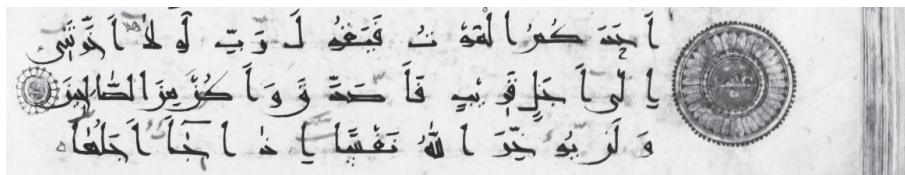 احدكم الموت فيقول رب لولا اخرتني
الى اجل قريب فاصدق واكن من الصالحين
ولن يؤخر الله نفسا اذا جا اجلها